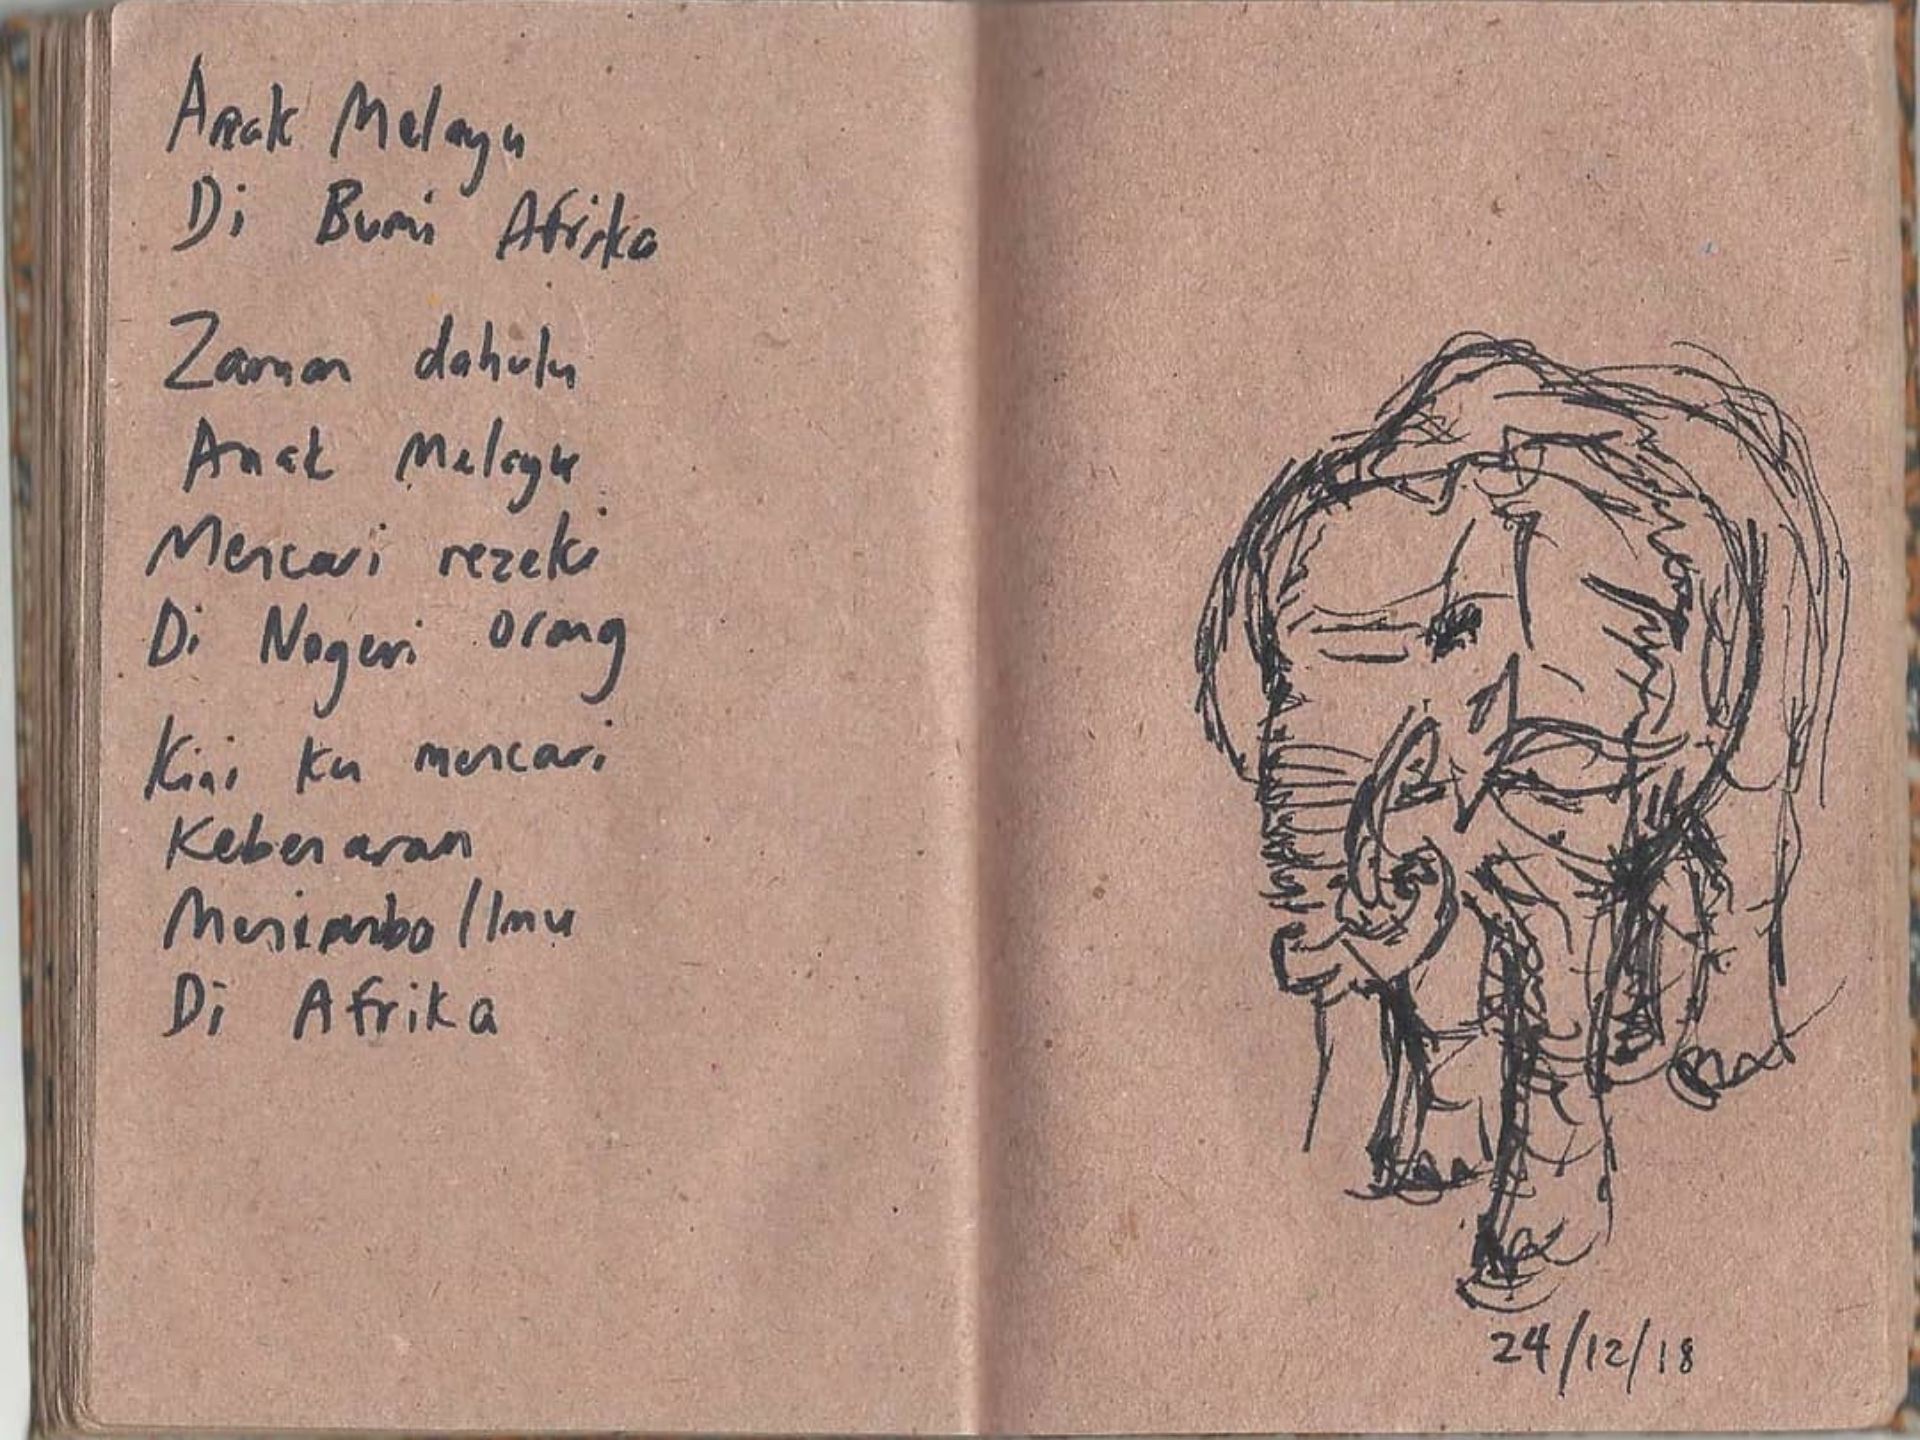 Anak Melayu
Di Bumi Afrika
Zaman dahulu
Anak Melayu
Mencari rezeki
Di Negeri orang
Kini ku mencari
Kebenaran
Menimba Ilmu
Di Afrika
24/12/18